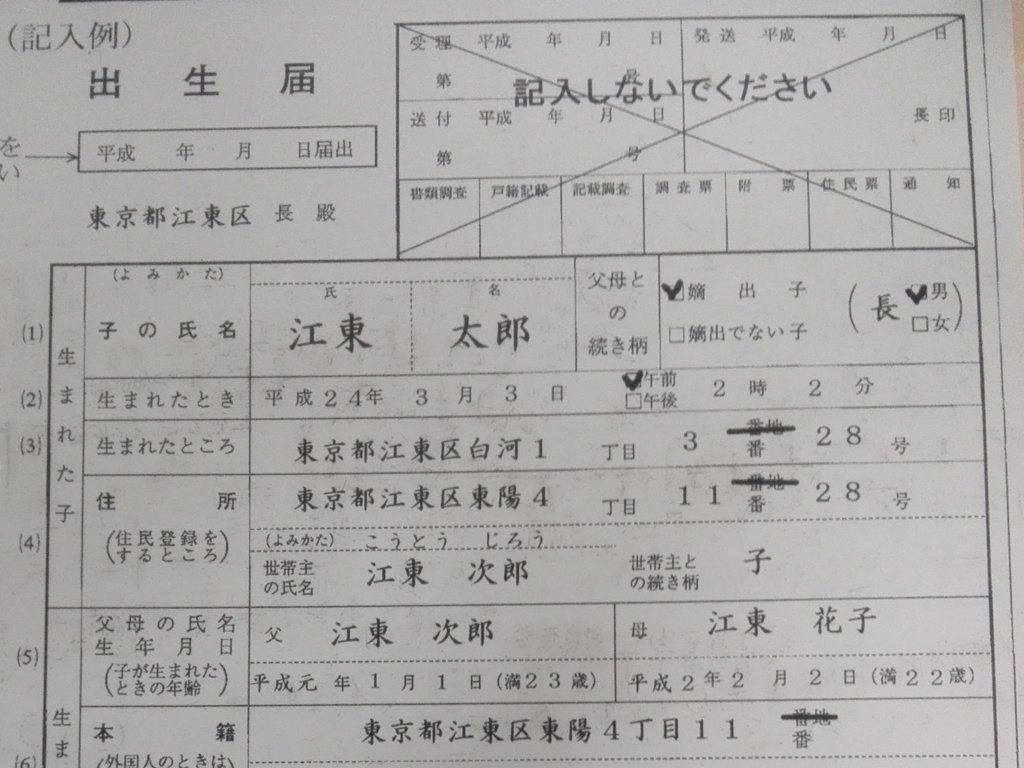 （記入例）
出生届
を
い
平成 年 月 日届出
東京都江東区 長 殿
受理 平成 年 月 日
第 号
発送 平成 年 月 日
記入しないでください
送付 平成 年 月 日
長印
第 号
書類調査 戸籍記載 記載調査 調査票 附票 住民票 通知
生まれた子
(1)
（よみかた）
子の氏名
氏 名
江東 太郎
父母との続き柄
☑嫡出子
□嫡出でない子
（長 ☑男 □女）
(2) 生まれたとき 平成24年 3月 3日 ☑午前 □午後 2時 2分
(3) 生まれたところ 東京都江東区白河1 丁目 3 番地 番 28 号
(4) 住所 東京都江東区東陽4 丁目 11 番地 番 28 号
（住民登録をするところ）
（よみかた） こうとう じろう
世帯主の氏名 江東 次郎
世帯主との続き柄 子
(5)
父母の氏名
生年月日
（子が生まれたときの年齢）
父 江東 次郎
母 江東 花子
平成元年1月1日（満23歳）
平成2年2月2日（満22歳）
生ま
(6)
本籍 東京都江東区東陽4丁目11 番地 番
（外国人のときは